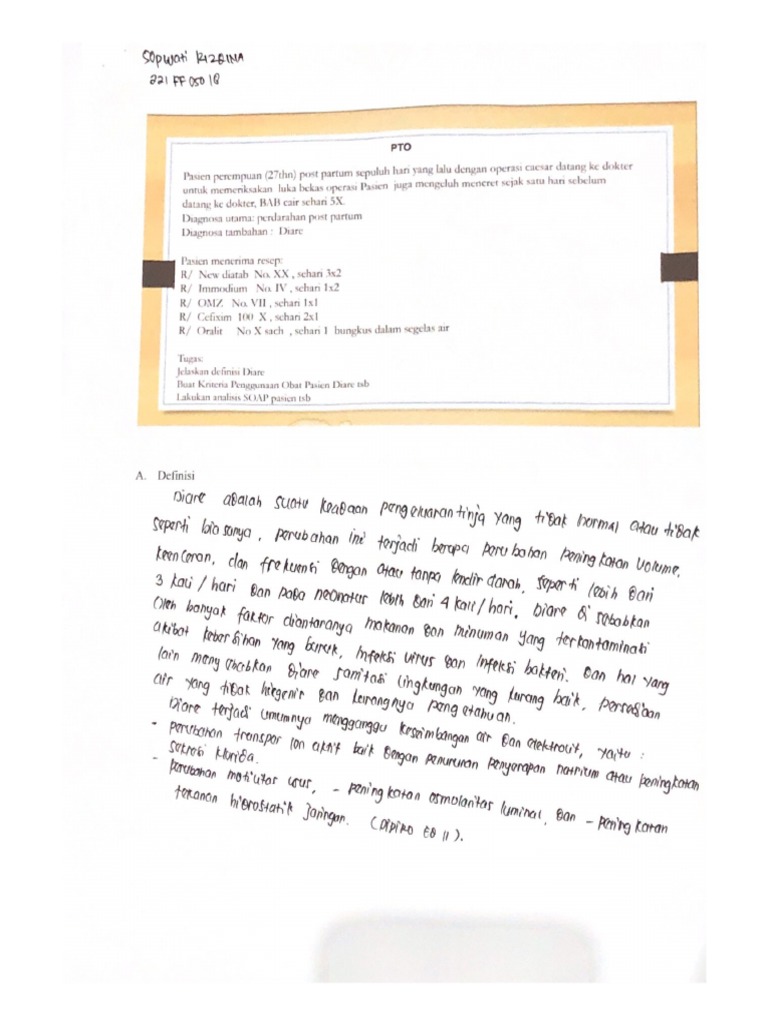 Sopwati RIZQINA
221 FF 05018
PTO
Pasien perempuan (27thn) post partum sepuluh hari yang lalu dengan operasi caesar datang ke dokter
untuk memeriksakan luka bekas operasi Pasien juga mengeluh menceret sejak satu hari sebelum
datang ke dokter, BAB cair sehari 5X.
Diagnosa utama: perdarahan post partum
Diagnosa tambahan : Diare
Pasien menerima resep:
R/ New diatab No. XX , sehari 3x2
R/ Immodium No. IV , sehari 1x2
R/ OMZ No. VII , sehari 1x1
R/ Cefixim 100 X , sehari 2x1
R/ Oralit No X sach , sehari 1 bungkus dalam segelas air
Tugas:
Jelaskan definisi Diare
Buat Kriteria Penggunaan Obat Pasien Diare tsb
Lakukan analisis SOAP pasien tsb
A. Definisi
Diare adalah suatu keadaan pengeluaran tinja yang tidak normal atau tidak
seperti biasanya, perubahan ini terjadi berupa perubahan peningkatan volume,
keenceran, dan frekuensi dengan atau tanpa lendir darah, seperti lebih dari
3 kali / hari dan pada neonatus lebih dari 4 kali / hari. Diare disebabkan
oleh banyak faktor diantaranya makanan dan minuman yang terkontaminasi
akibat kebersihan yang buruk, infeksi virus dan infeksi bakteri. Dan hal yang
lain menyebabkan diare sanitasi lingkungan yang kurang baik, persediaan
air yang tidak higenis dan kurangnya pengetahuan.
Diare terjadi umumnya mengganggu keseimbangan air dan elektrolit, yaitu :
- perubahan transpor ion aktif baik dengan penurunan penyerapan natrium atau peningkatan
sekresi klorida.
- perubahan motilitas usus, - peningkatan osmolaritas luminal, dan - peningkatan
tekanan hidrostatik jaringan. (DIPIRO ED 11).